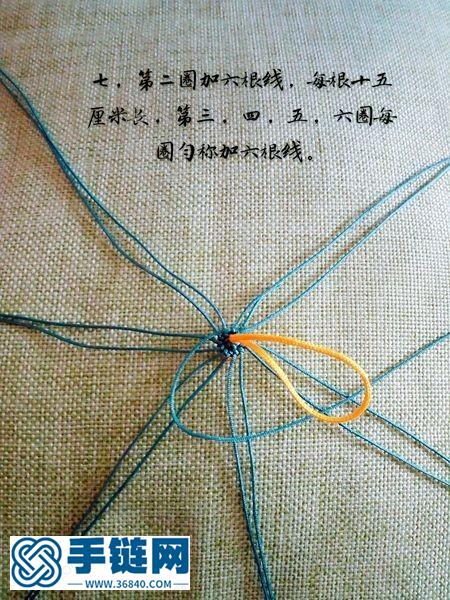 七，第二圈加六根线，每根十五
厘米长，第三，四，五，六圈每
圈匀称加六根线。
手链网
WWW.36840.COM